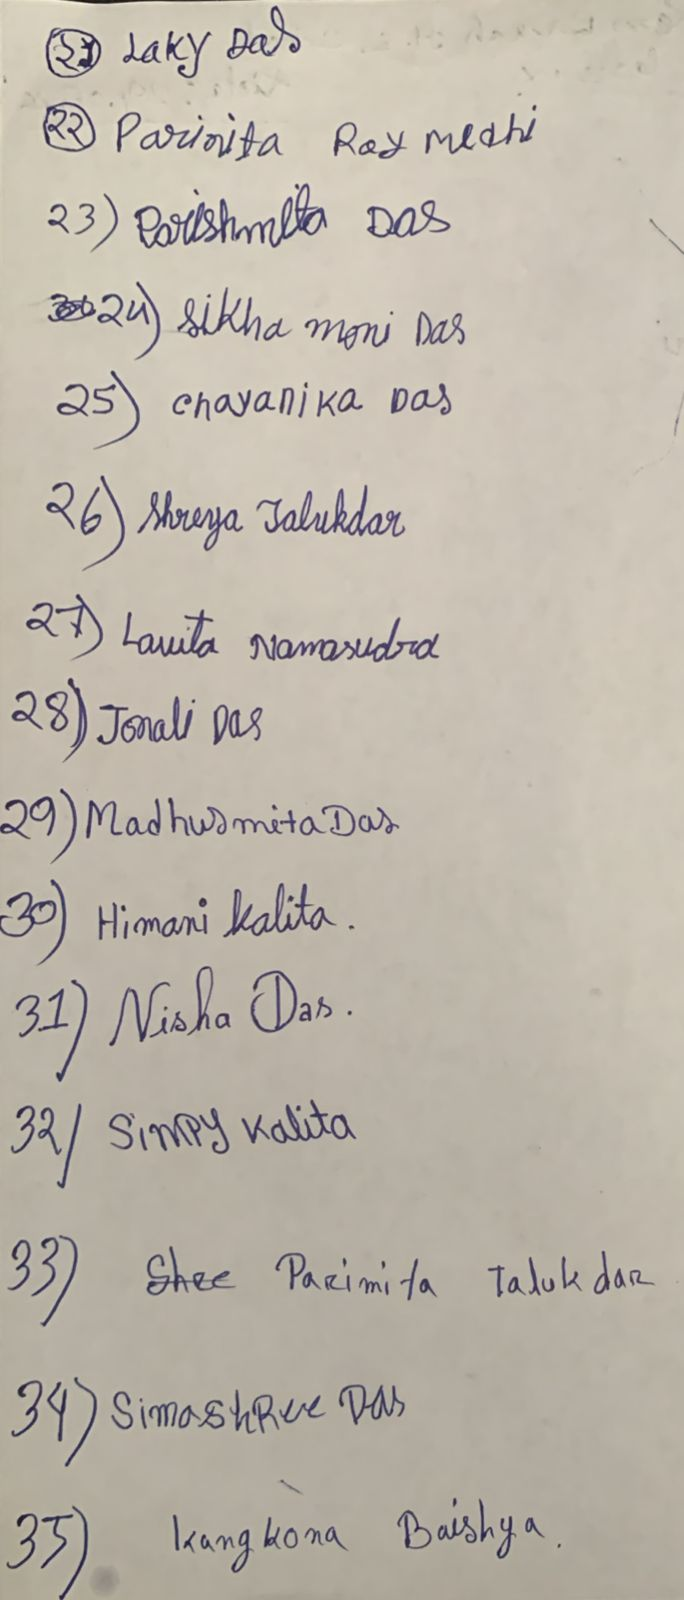 21 Laky Das
22 Parinita Ray Medhi
23) Parishmita Das
24) Sikha moni Das
25) Chayanika Das
26) Shreya Talukdar
27) Lavita Namasudra
28) Jonali Das
29) Madhusmita Das
30) Himani Kalita.
31) Nisha Das.
32/ Simpy Kalita
33) Parimita Talukdar
34) Simashree Das
35) Kangkona Baishya.